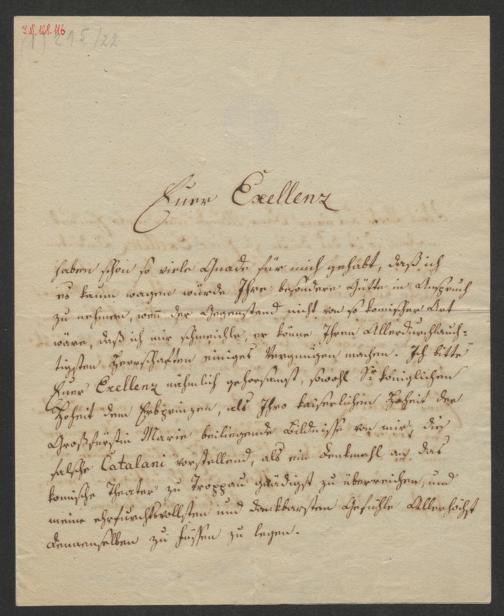 215/22
Euer Exellenz
haben schon so viele Gnade für mich gehabt, daß ich
es kaum wagen würde Ihre besondere Güte in Anspruch
zu nehmen, wenn der Gegenstand nicht von so komischer Art
wäre, daß ich mir schmeichle, er könne Ihren Allerdurchlauch-
tigsten Herrschaften einiges Vergnügen machen. Ich bitte
Euer Exellenz nähmlich gehorsamst, sowohl Sr königlichen
Hoheit dem Erbprinzen, als Ihro kaiserlichen Hoheit der
Großfürstin Marie beiliegende Bildnisse von mir, die
falsche Catalani vorstellend, als ein Denkmahl an das
komische Theater zu Troppau gnädigst zu überreichen, und
meine ehrfurchtsvollsten und dankbarsten Gefühle Allerhöchst
denenselben zu Füssen zu legen.